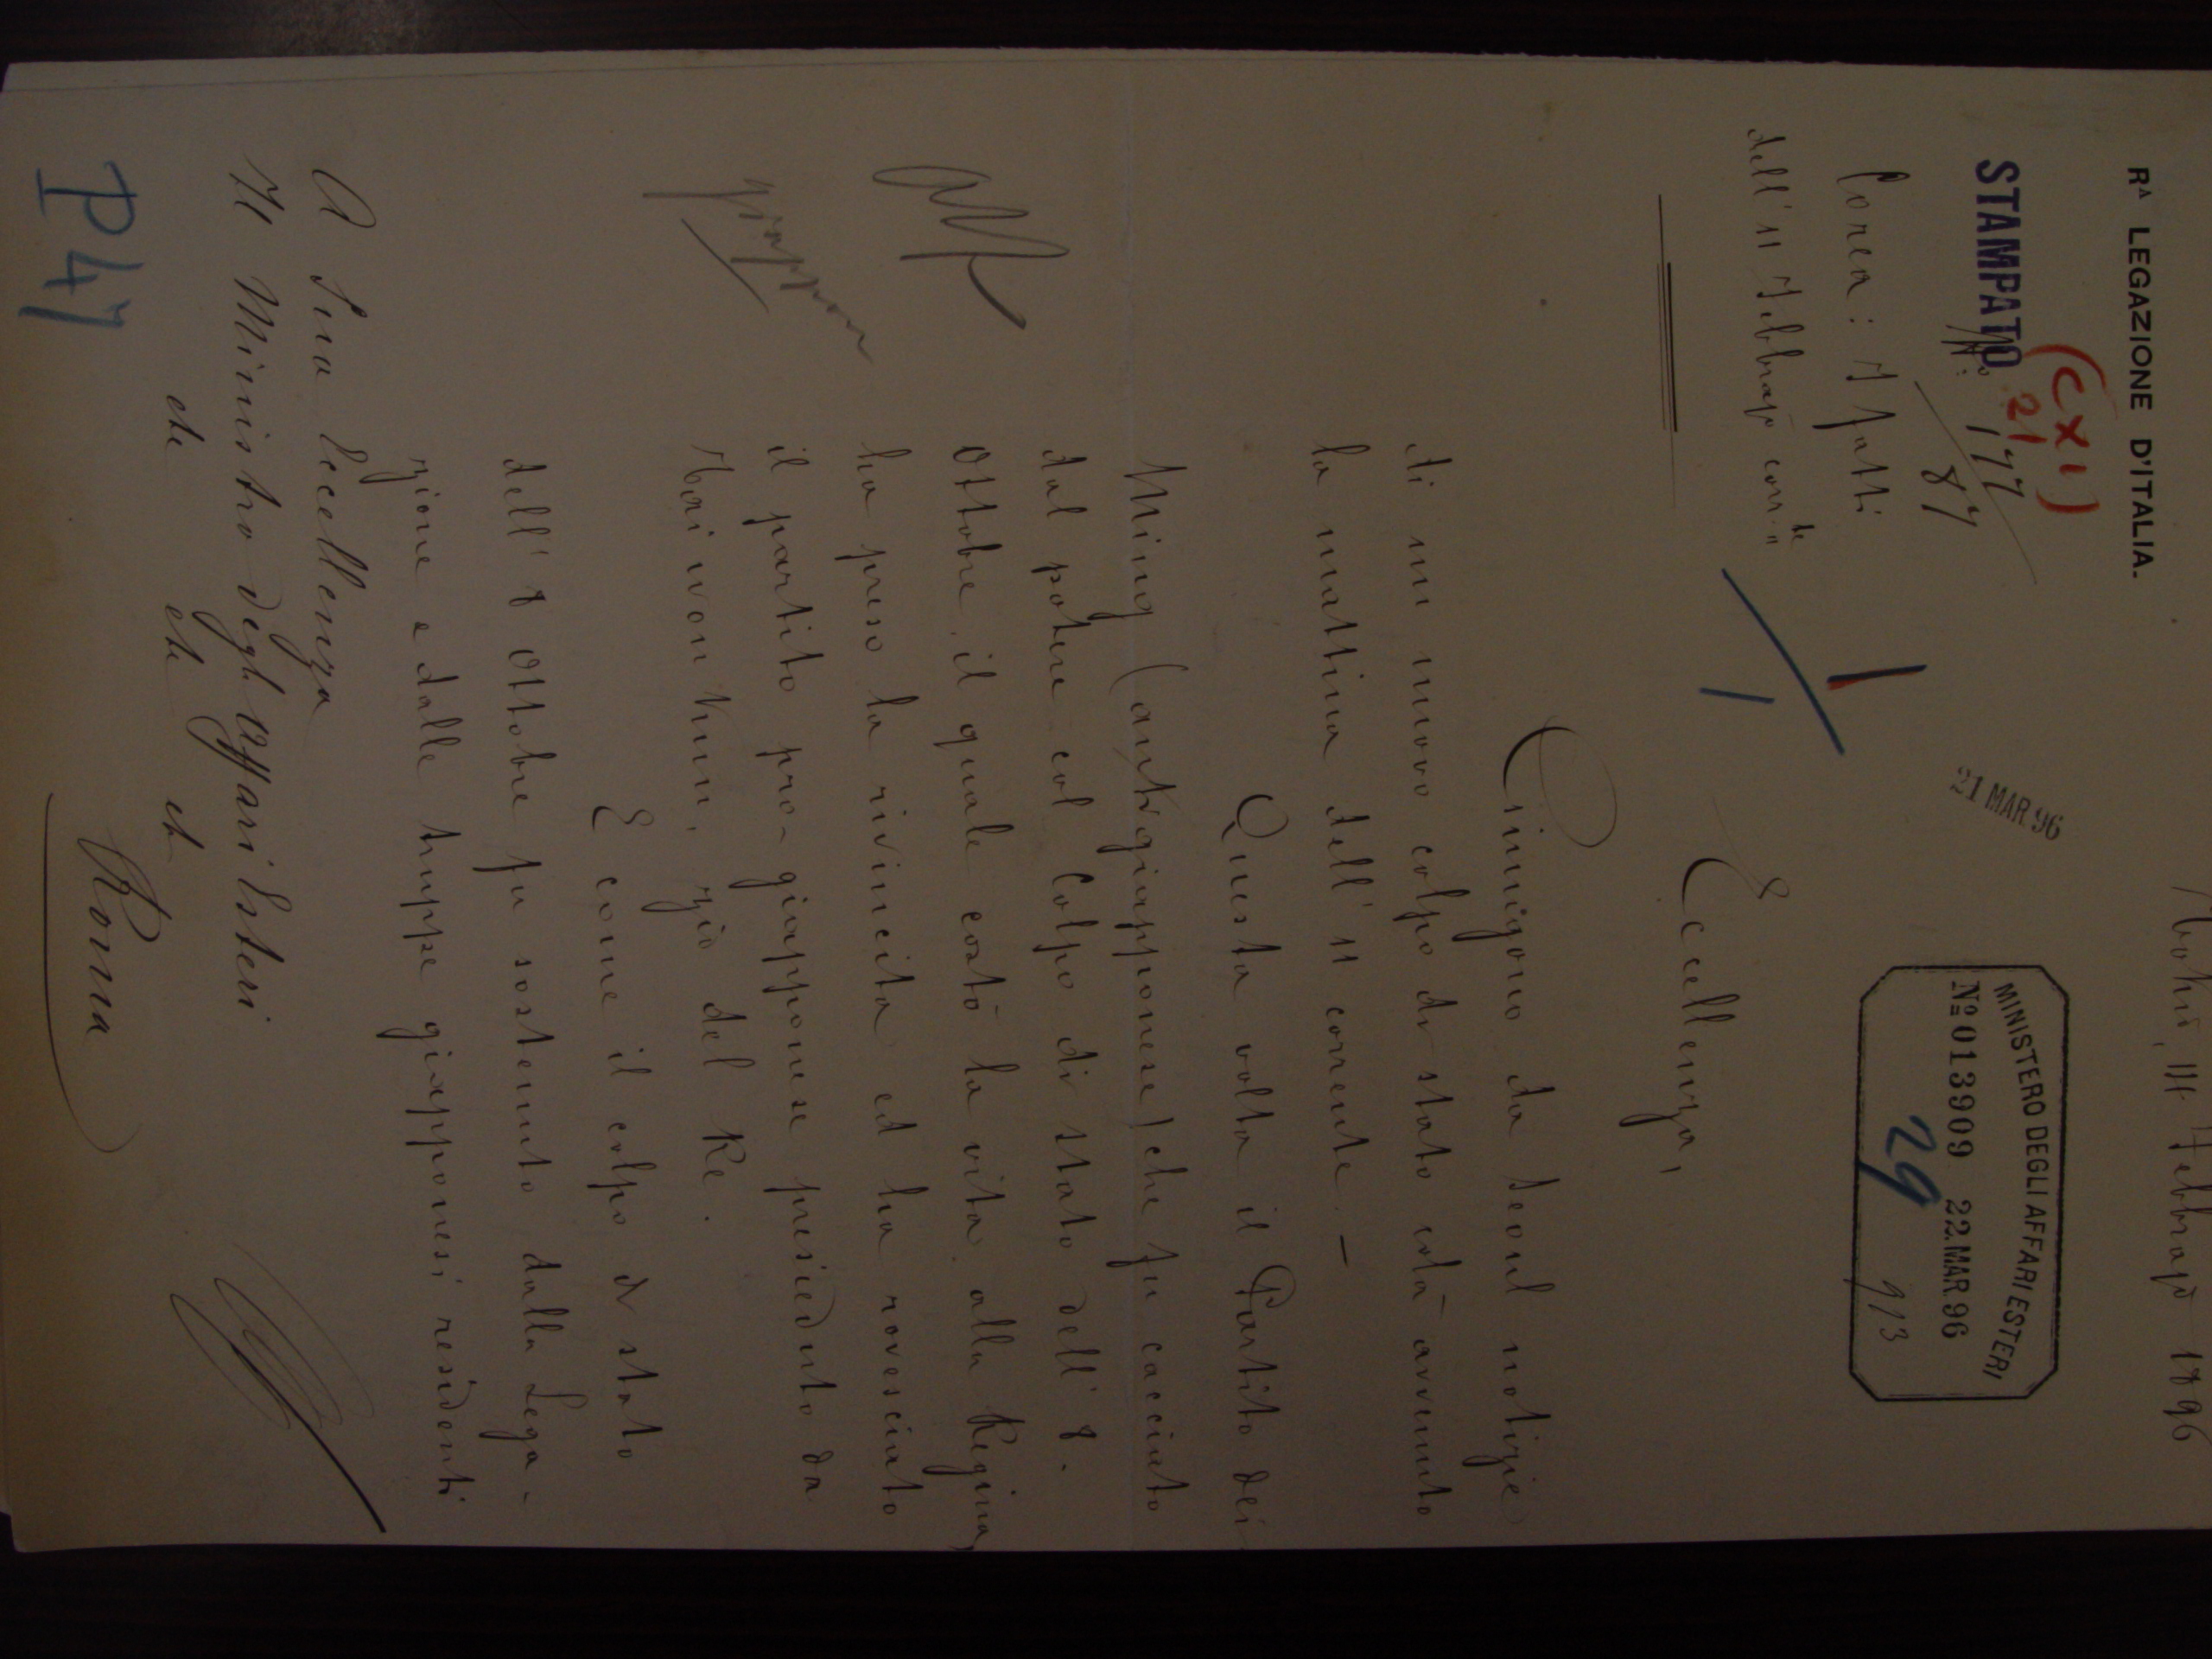 Rᴬ LEGAZIONE D'ITALIA.
Febbrajo 1896
(CXI)
21
STAMPATO
Nº 177
87
21 MAR 96
MINISTERO DEGLI AFFARI ESTERI
Nº 013909 22.MAR.96
29
913
Corea: I fatti
dell'11 Febbrajo corr.te
Eccellenza,
Giungono da Seoul notizie
di un nuovo colpo di stato colà avvenuto
la mattina dell'11 corrente. —
Questa volta il Partito dei
Ming (antigiapponese) che fu cacciato
dal potere col Colpo di stato dell'8.
Ottobre, il quale costò la vita alla Regina,
ha preso la rivincita ed ha rovesciato
il partito pro-giapponese presieduto da
Tai won Kun, zio del Re.
E come il colpo di stato
dell'8 Ottobre fu sostenuto dalla Lega-
zione e dalle truppe giapponesi residenti
Giappone
A Sua Eccellenza
Il Ministro degli Affari Esteri
etc etc et
Roma
P47